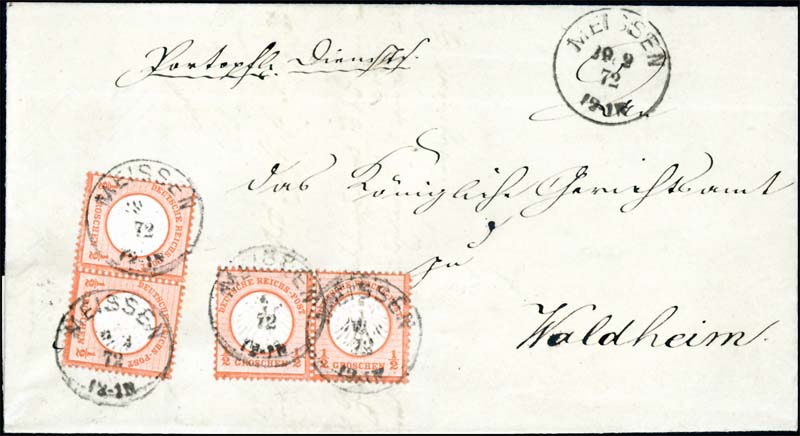 Portopfl. Diensts.
MEISSEN
72
12-1N
An
das Königliche Gerichtsamt
zu
Waldheim.
MEISSEN
72
12-1N
DEUTSCHE REICHS-POST
1/2 GROSCHEN 1/2
MEISSEN
72
12-1N
DEUTSCHE REICHS-POST
1/2 GROSCHEN 1/2
MEISSEN
72
12-1N
DEUTSCHE REICHS-POST
1/2 GROSCHEN 1/2
MEISSEN
72
12-1N
1/2 GROSCHEN 1/2